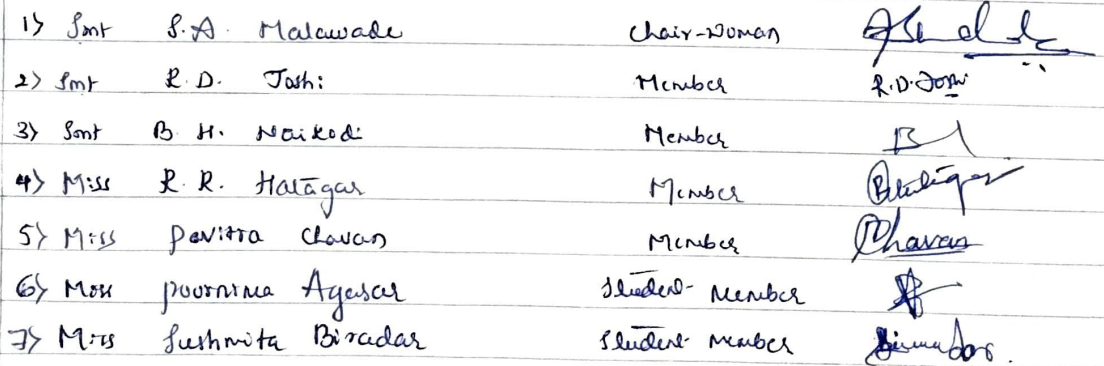 1) Smt S.A. Malawade Chair-Woman
2) Smt R.D. Joshi Member R.D.Joshi
3) Smt B.H. Naikodi Member B
4) Miss R.R. Halāgar Member
5) Miss Pavitra Chavan Member Chavan
6) Miss Poornima Agasar Student- Member
7) Miss Sushmita Biradar Student- Member